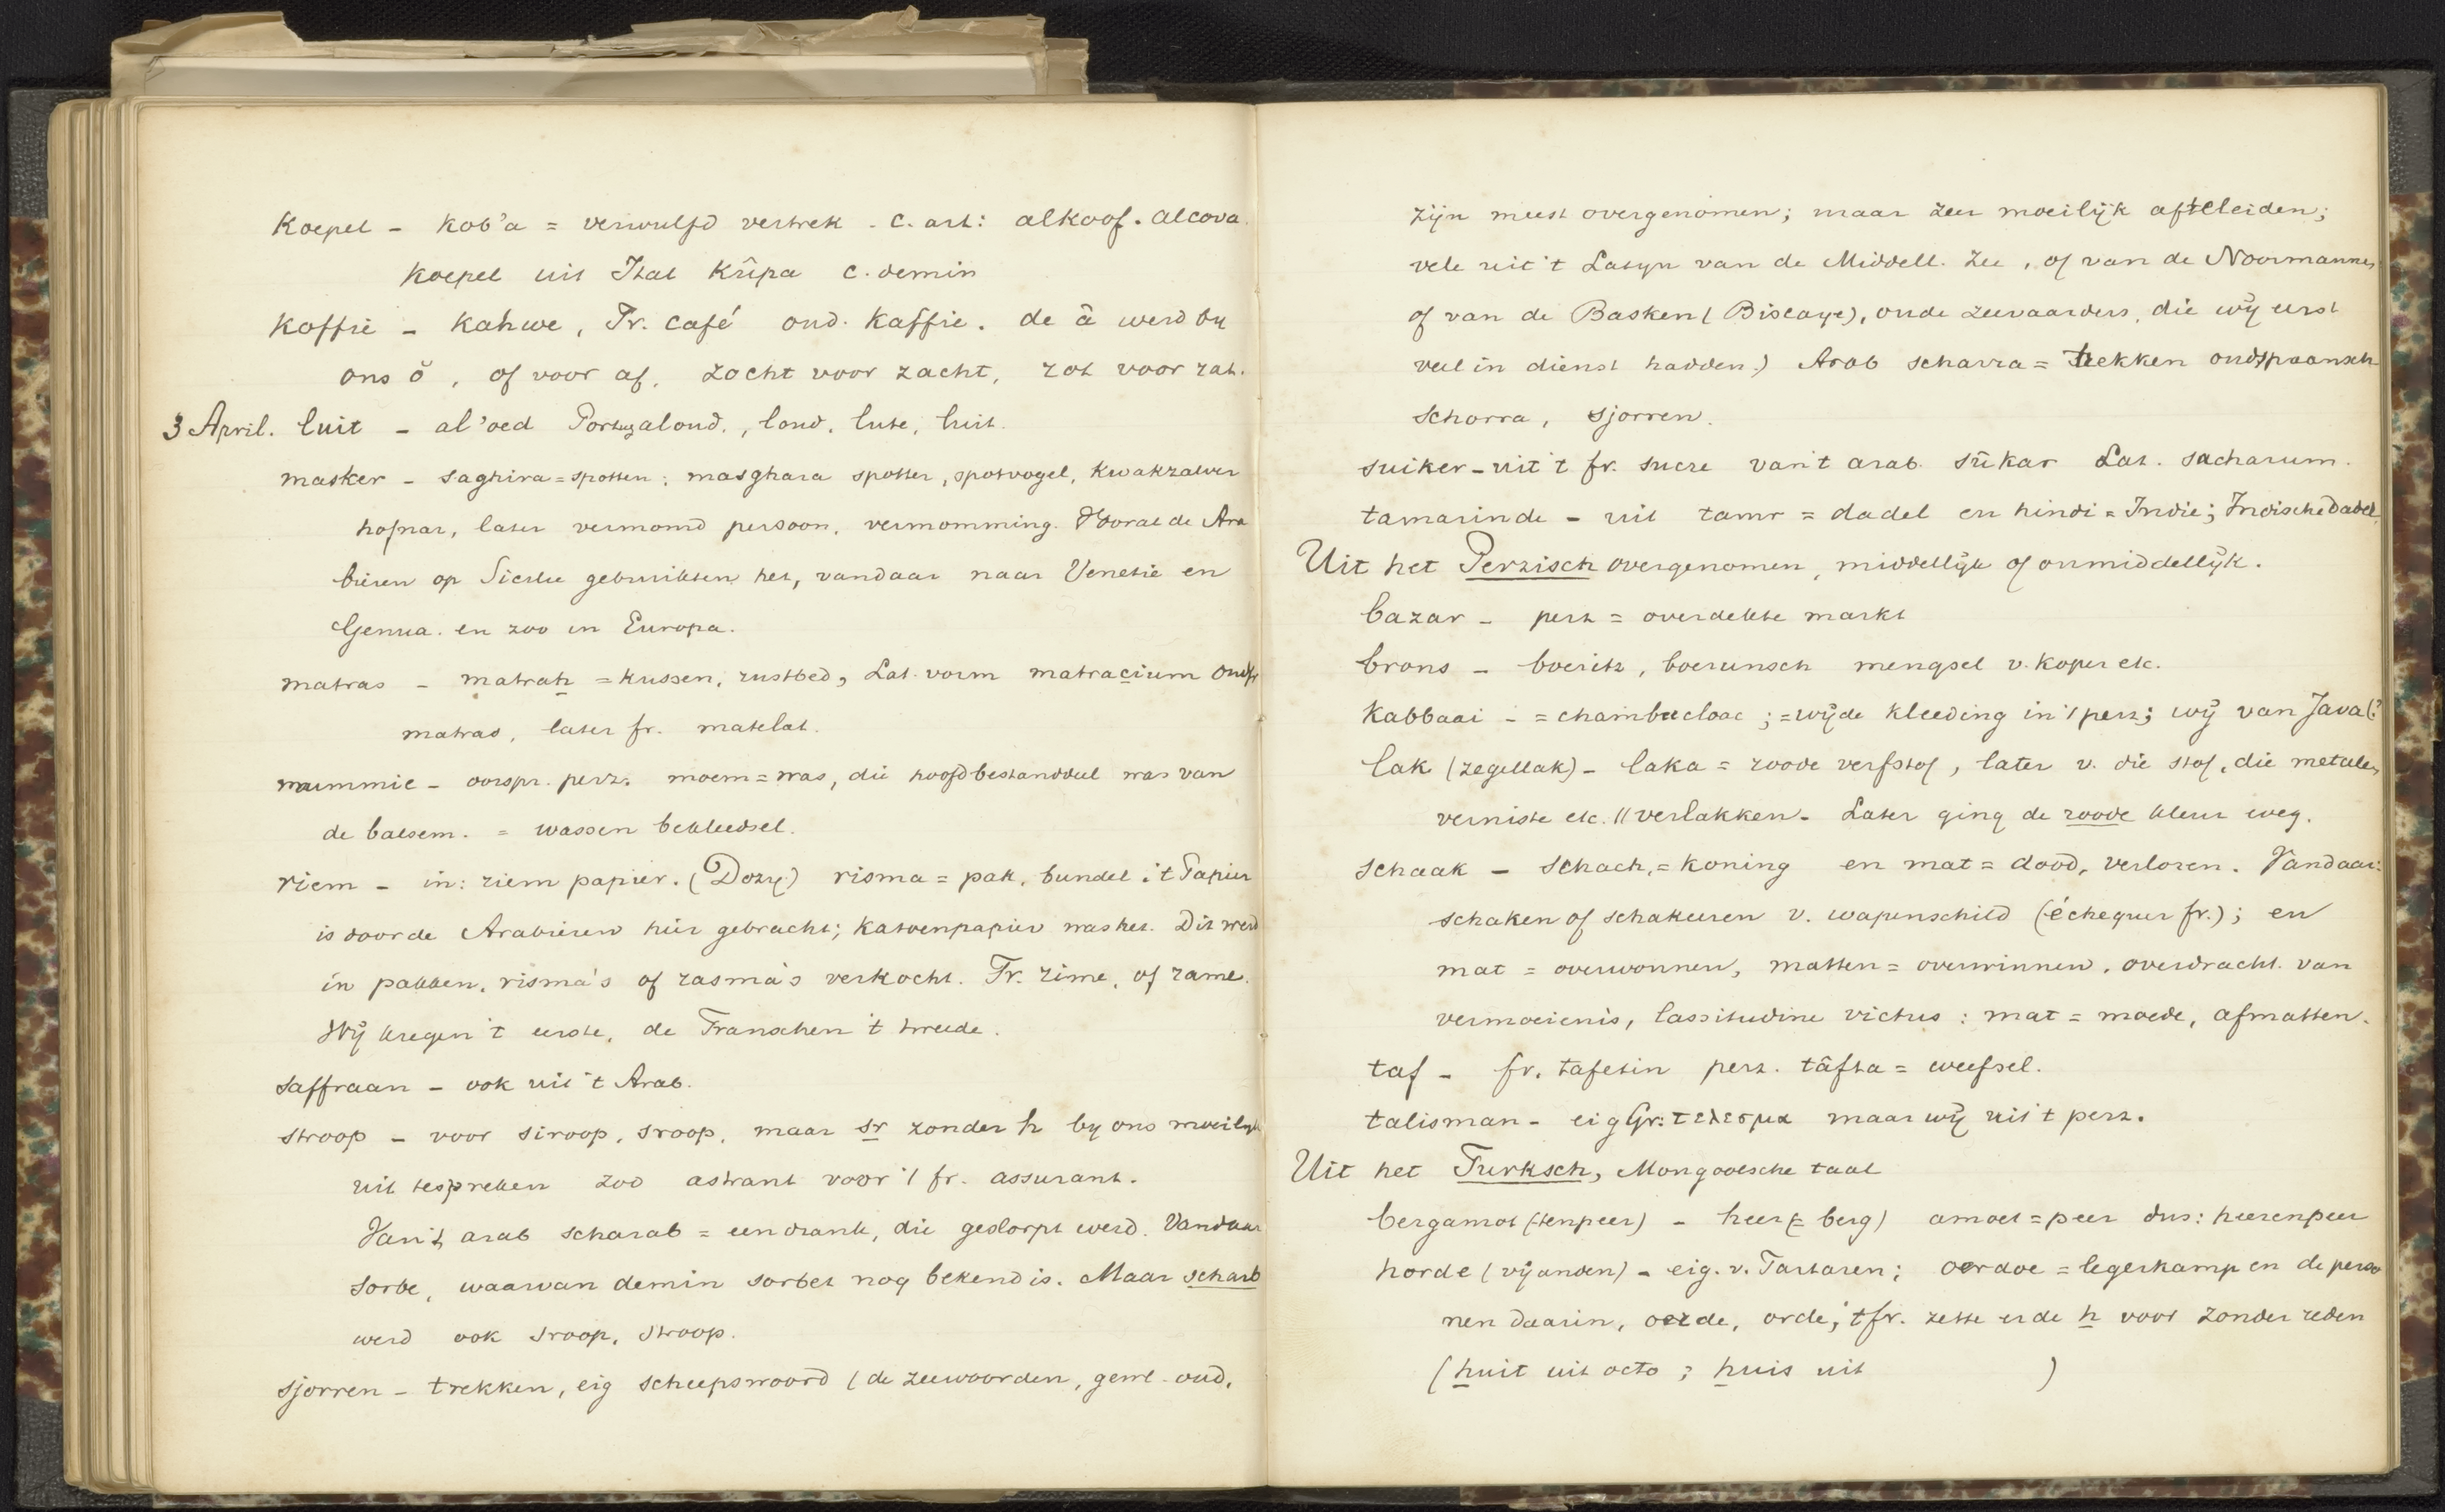 Koepel - Kob'a = verwulfd vertrek. c. art: alkoof. alcova.
Koepel uit Ital kûpa c. demin
Koffie - Kahwe, Fr. café oud. Kaffie. de â werd by
ons ŏ, of voor af, zocht voor zacht, zot voor zat.
3 April. luit - al'oed Portugaloud., loud. lute, luit.
masker - saghira = spotten; masghara spotter, spotvogel, kwakzalver
hofnar, later vermomd persoon, vermomming. Vooral de Ara
bieren op Sicilie gebruikten het, vandaar naar Venetie en
Genua. en zoo in Europa.
matras - matrah = kussen, rustbed, Lat. vorm matracium oudfr
matras, later fr. matelat.
mummie - oorspr. perz. moem = was, die hoofdbestanddeel was van
de balsem. = wassen bekleedsel.
riem - in: riem papier. (Dozy) risma = pak, bundel; 't Papier
is door de Arabieren hier gebracht; katoenpapier was het. Dit werd
in pakken, risma's of rasma's verkocht. Fr. rime, of rame.
Wij kregen 't eerste, de Franschen 't tweede.
saffraan - ook uit 't Arab.
stroop - voor siroop, sroop, maar sr zonder h by ons moeilijk
uit te spreken zoo astrant voor 't fr. assurant.
Van 't arab scharab = een drank, die geslorpt werd. Vandaar
sorbe, waarvan demin sorbet nog bekend is. Maar scharb
werd ook sroop, stroop.
sjorren - trekken, eig scheepswoord (de zeewoorden, gewl. oud,
zijn meest overgenomen; maar zeer moeilijk af te leiden;
vele uit 't Latyn van de Middell. Zee, of van de Noormannen
of van de Basken (Biscaye), oude zeevaarders, die wij eerst
veel in dienst hadden.) Arab scharra = trekken oudspaansch
schorra, sjorren.
suiker - uit 't fr. sucre van 't arab. sûkar Lat. sacharum.
tamarinde - uit tamr = dadel en hindi = Indie; Indische dadel.
Uit het Perzisch overgenomen, middellijk of onmiddellijk.
bazar - perz = overdekte markt
brons - boeritz, boerunsch mengsel v. koper etc.
Kabbaai - = chambrecloac; = wijde kleeding in 't perz; wij van Java (?
lak (zegellak) - laka = roode verfstof, later v. die stof, die metalen
verniste etc. // verlakken - Later ging de roode kleur weg.
schaak - schach, = koning en mat = dood, verloren. Vandaar:
schaken of schakeeren v. wapenschild (échequer fr.); en
mat = overwonnen, matten = overwinnen. overdracht. van
vermoeienis, lassitudine victus: mat = moede, afmatten.
taf - fr. tafetin perz. tâfta = weefsel.
talisman - eig Gr: τελεσμα maar wij uit 't perz.
Uit het Turksch, Mongoolsche taal
bergamot (tenpeer) - heer (= berg) amoet = peer dus: heerenpeer
horde (vijanden) - eig. v. Tartaren; oerdoe = legerkamp en de perso
nen daarin, oerde, orde; 't fr. zette er de h voor zonder reden
(huit uit octo; huis uit )